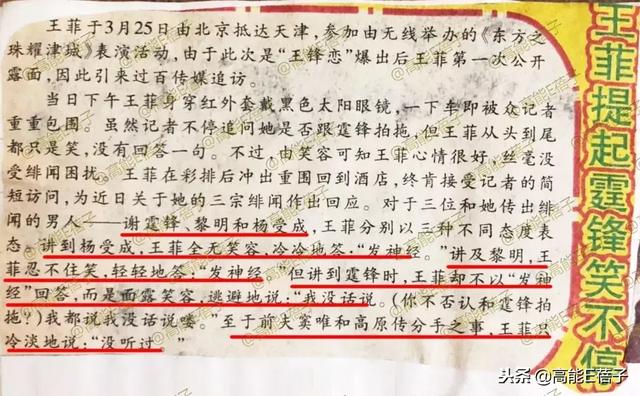 王菲于3月25日由北京抵达天津，参加由无线举办的《东方之
珠耀津城》表演活动，由于此次是“王锋恋”爆出后王菲第一次公开
露面，因此引来过百传媒追访。
当日下午王菲身穿红外套戴黑色太阳眼镜，一下车即被众记者
重重包围。虽然记者不停追问她是否跟霆锋拍拖，但王菲从头到尾
都只是笑，没有回答一句。不过，由笑容可知王菲心情很好，丝毫没
受绯闻困扰。王菲在彩排后冲出重围回到酒店，终肯接受记者的简
短访问，为近日关于她的三宗绯闻作出回应。对于三位和她传出绯
闻的男人——谢霆锋、黎明和杨受成，王菲分别以三种不同态度表
态。讲到杨受成，王菲全无笑容，冷冷地答：“发神经。”讲及黎明，王
菲忍不住笑，轻轻地答：“发神经。”但讲到霆锋时，王菲却不以“发神
经”回答，而是面露笑容，逃避地说：“我没话说。（你不否认和霆锋拍
拖？）我都说我没话说喽。”至于前夫窦唯和高原传分手之事，王菲只
冷淡地说：“没听过。”
王菲提起霆锋笑不停
头条 @高能E蓓子